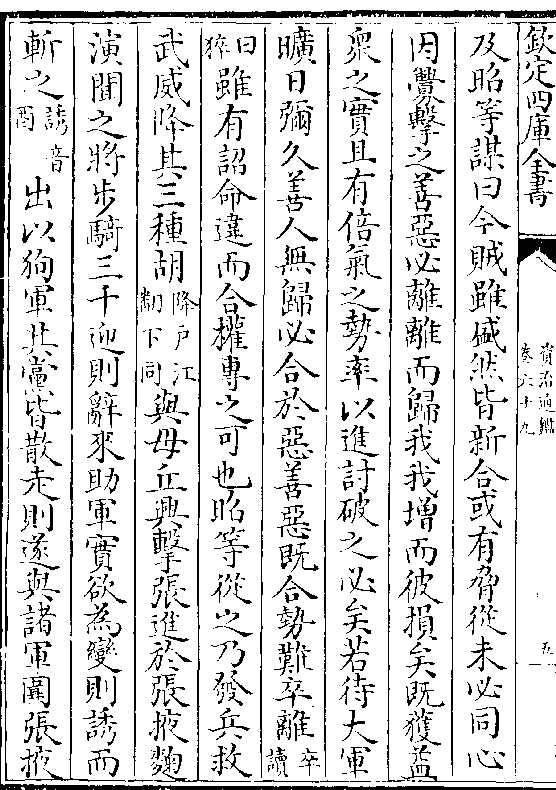 欽定四庫全書
資治通鑑
卷六十九
五
及昭等謀曰今賊雖盛然皆新合或有脅從未必同心
因釁擊之善惡必離離而歸我我增而彼損矣既獲益
衆之實且有倍氣之勢率以進討破之必矣若待大軍
曠日彌久善人無歸必合於惡善惡既合勢難卒離卒讀
曰猝雖有詔命違而合權專之可也昭等從之乃發兵救
武威降其三種胡降户江翻下同與毋丘興擊張進於張掖麴
演聞之將步騎三千迎則辭來助軍實欲為變則誘而
斬之誘音酉出以狥軍其黨皆散走則遂與諸軍圍張掖